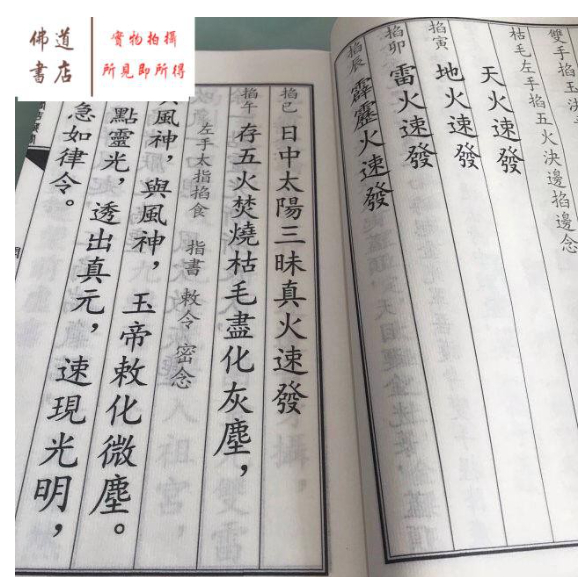 佛道
書店
實物拍攝
所見即所得
雙手掐玉決
枯毛左手掐五火決邊掐邊念
天火速發
掐寅 地火速發
掐卯 雷火速發
掐辰 霹靂火速發
掐巳 日中太陽三昧真火速發
掐午 存五火焚燒枯毛盡化灰塵，
左手太指掐食 指書 敕令 密念
風神，與風神，玉帝敕化微塵。
點靈光，透出真元，速現光明，
急如律令。